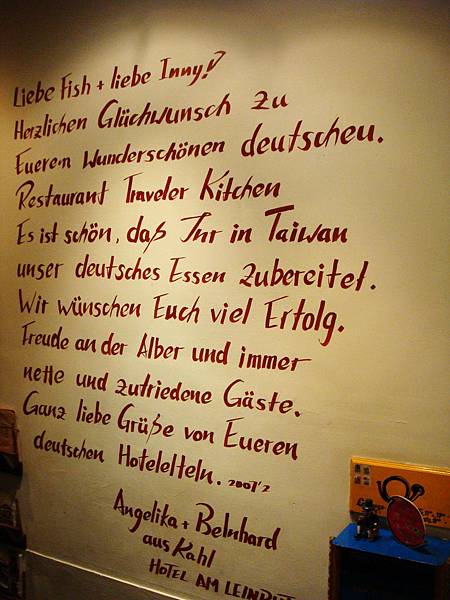 Liebe Fish + liebe Inny!
Herzlichen Glüchwunsch zu
Euerem wunderschönen deutscheu.
Restaurant Traveler Kitchen
Es ist schön, daß Ihr in Taiwan
unser deutsches Essen zubereitet.
Wir wünschen Euch viel Erfolg.
Freude an der Alber und immer
nette und zufriedene Gäste.
Ganz liebe Grüße von Eueren
deutschen Hotelelteln. 2007'2
Angelika + Belnhard
aus Kahl
HOTEL AM